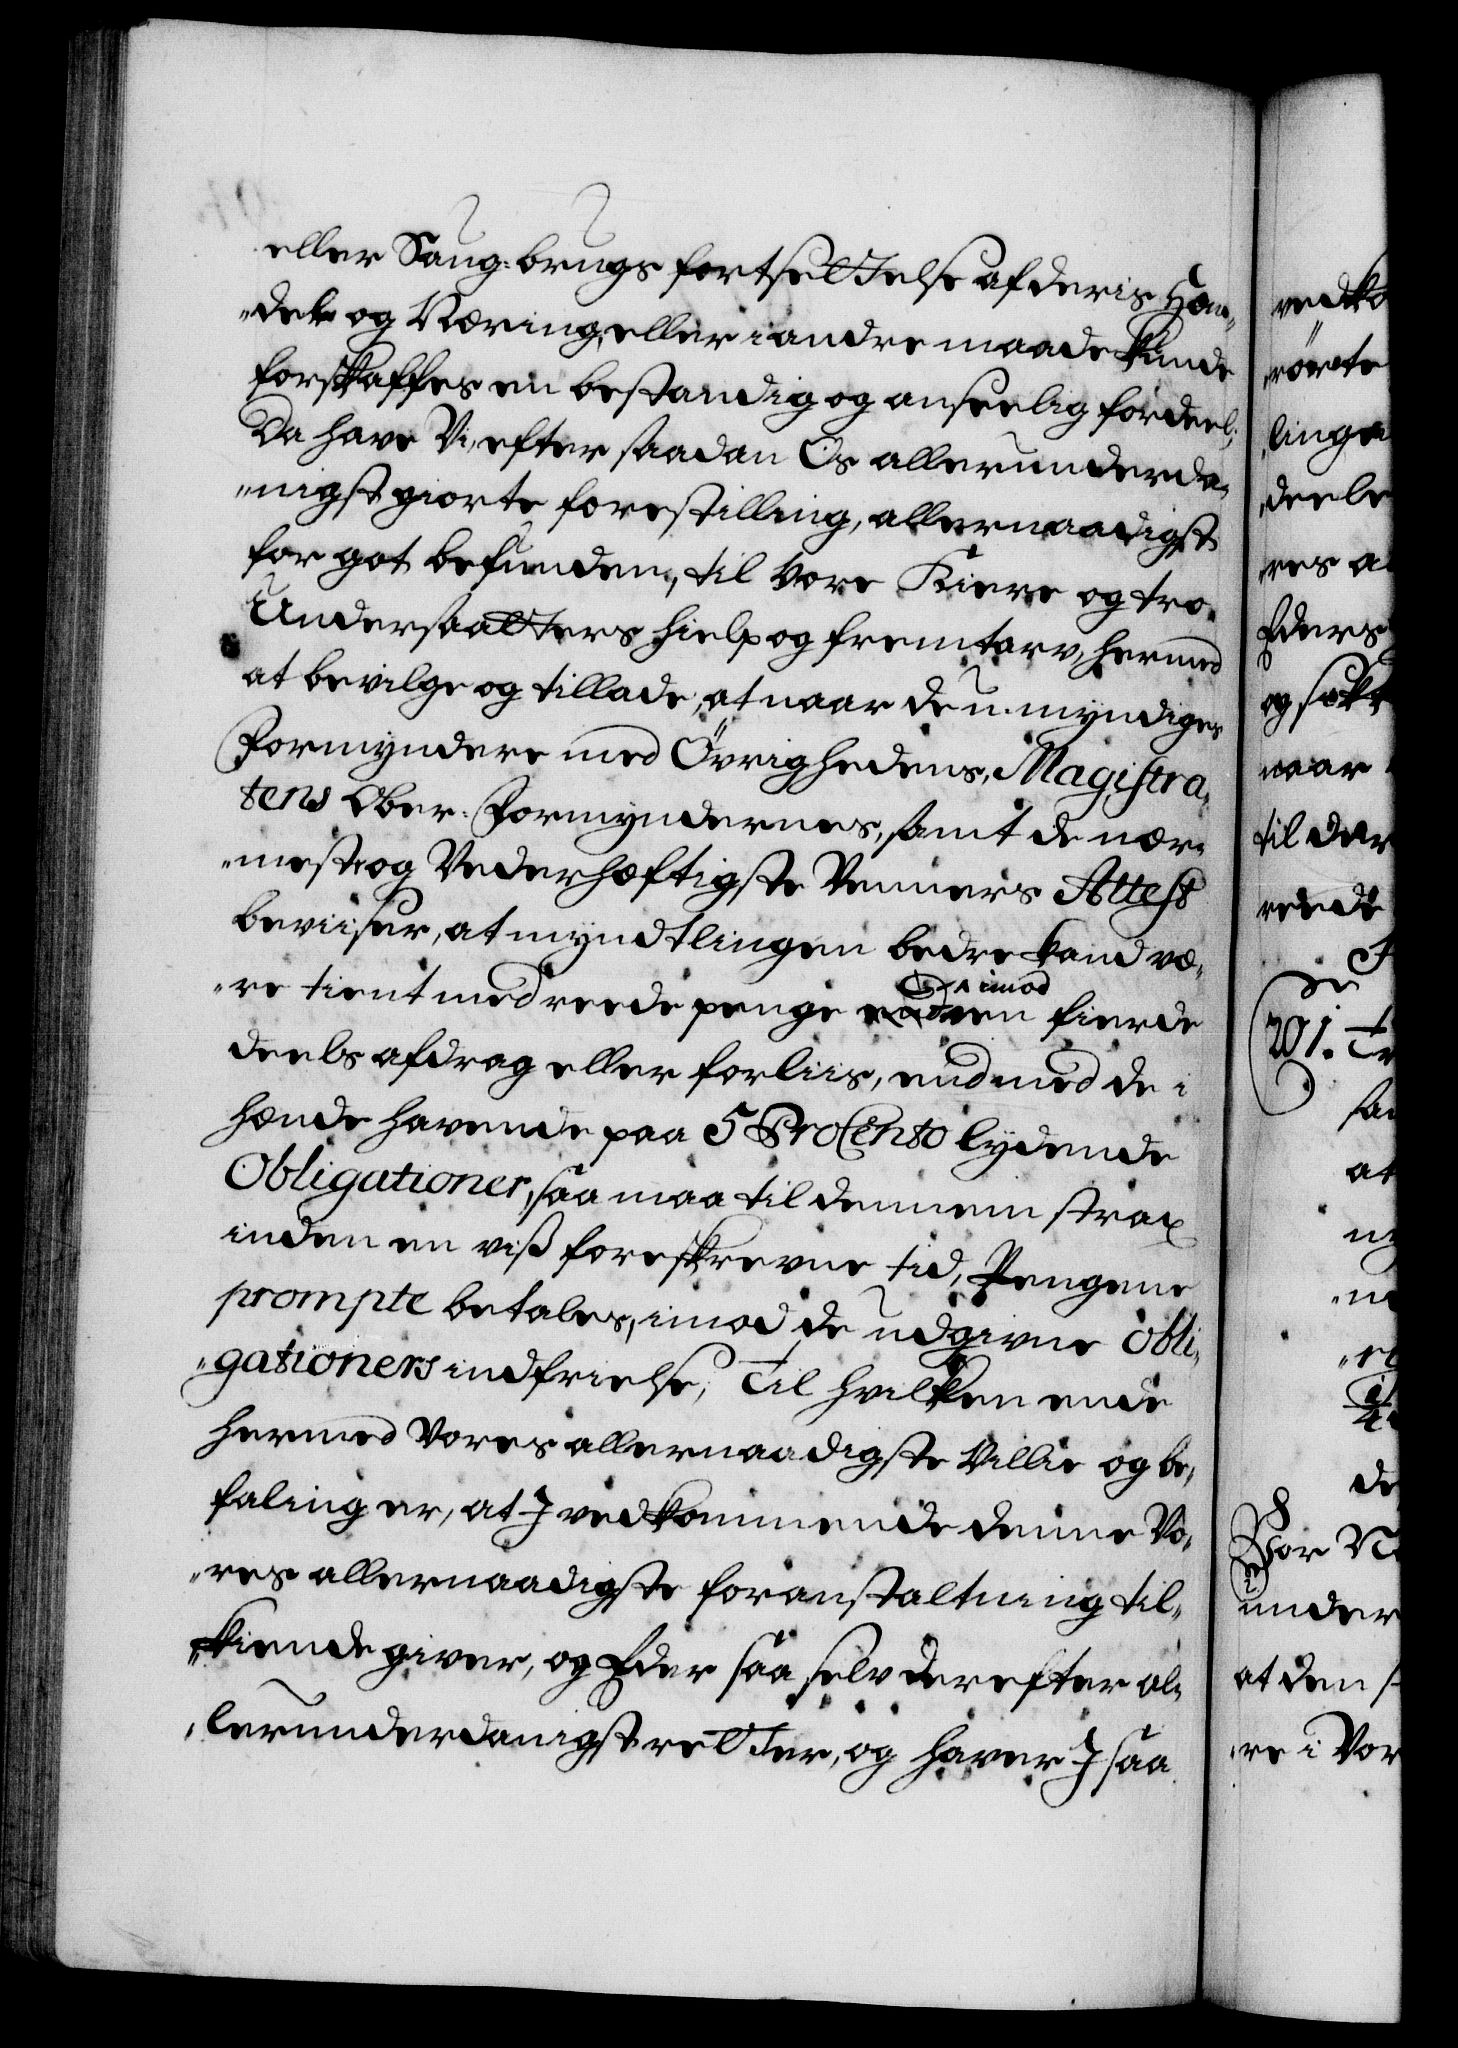 eller Saug-brugs fortsettelse af deris Han-
"del og Næring, eller i andre maade kunde
forskaffes en bestandig og anseelig fordeel;
Da have Vi, efter saadan Os allerunderda-
"nigst giorte forestilling, allernaadigst
for got befunden, til Vore Kiere og tro-
Undersaatters hielp og fremtarv, hermed
at bevilge og tillade, at naar de u-myndiges
Formyndere med Övrighedens, Magistra-
tens Ober-Formyndernes, samt de nær-
"meste og Vederhæftigste Venners Attest
beviiser, at myndtlingen bedre kand væ-
"re tient med reede penge imod en fierde
deels afdrag eller forliis, end med de i
hænde havende paa 5 ProCento lydende
Obligationer, saa maa til dennem strax
inden en viss foreskrevne tid, Pengene
prompte betales, imod de udgivne Obli-
"gationers indfrielse; Til hvilken ende
hermed Vores allernaadigste Villie og be-
faling er, at I vedkommende denne Vo-
"res allernaadigste foranstaltning til-
"kiende giver, og Eder saa selv derefter al-
"lerunderdanigst retter, og haver I saa
vedko
"rörte
linge
deele
res a
Eders
og
naar
til der
reede
201. Tr
sa
at
de
Vor N
under
at den s
"re i Vor